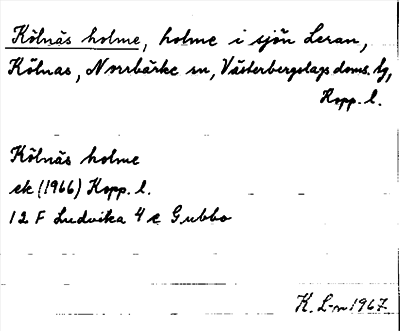 Kölnäs holme, holme i sjön Leran,
Kölnäs, Norrbärke sn, Västerbergslags doms. hg,
Kopp. l.
Kölnäs holme
ek (1966) Kopp. l.
12 F Ludvika 4 e Gubbo
K. L-m 1967